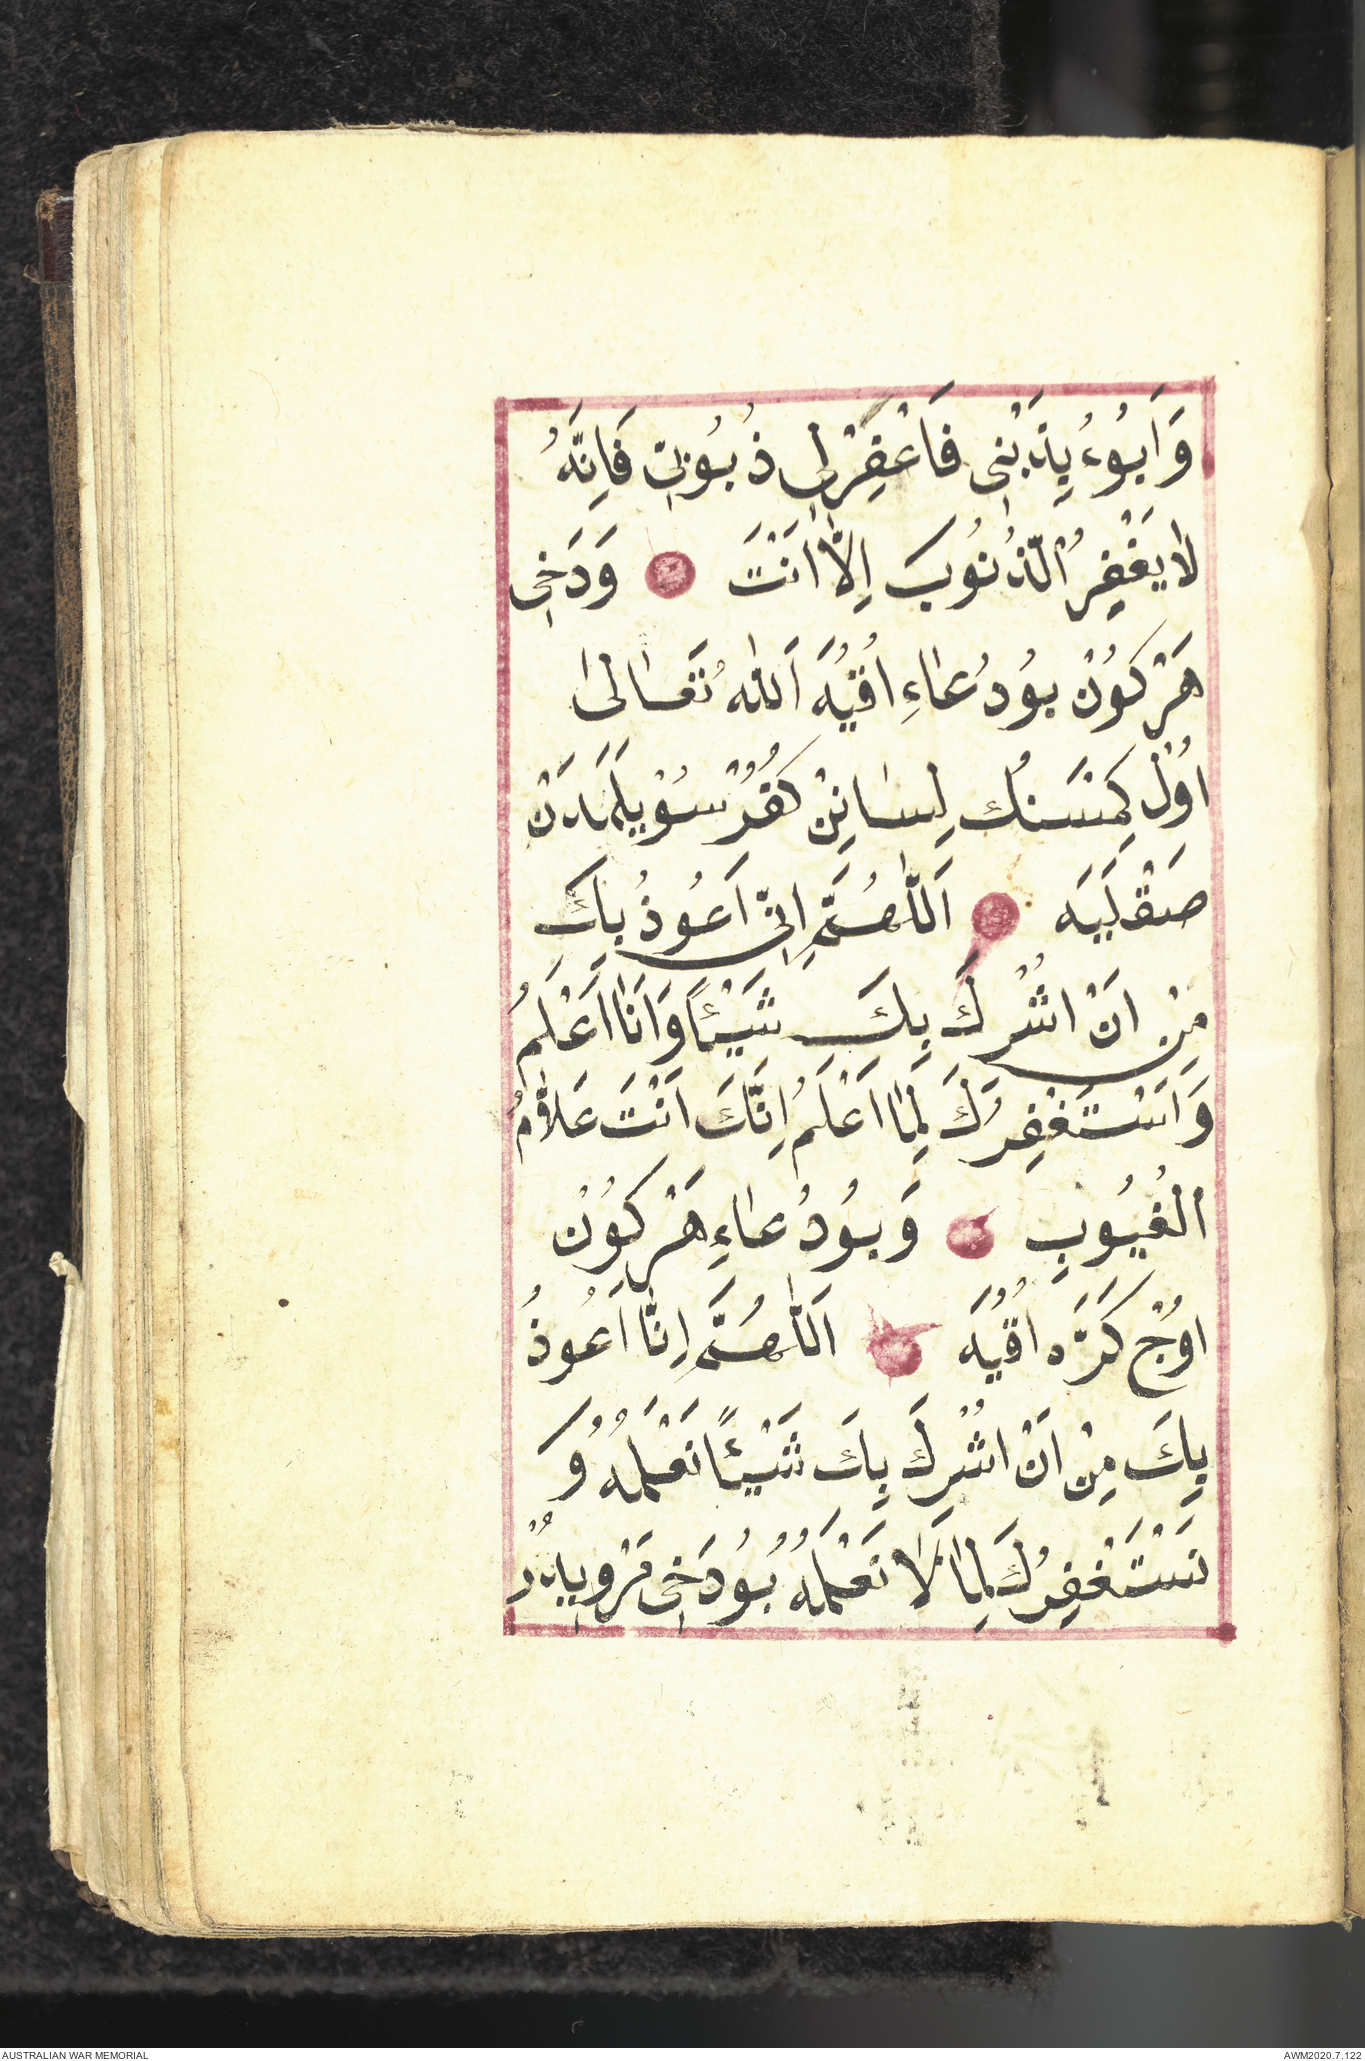 وَاَبُوُءُ بِذَنْبٖى فَاغْفِرْلٖى ذُبُوُبٖى فَاِنَّهُ
لٰا يَغْفِرُ الّذُنُوُبَ اِلّٰا اَنْتَ وَدَخٖى
هَرْ كُوُنْ بُودُعٰاءِ اُقُيَه اَللّٰهُ تَعٰالٰى
اوُلْ كِمْسَنُكْ لِسٰانِنْ كُفُرْ سُوْيلَمَدَنْ
صَقْلَيَه اَللّٰهُمَّ اِنّٖى اَعُوُذُ بِكَ
مِنْ اَنْ اُشْرِكَ بِكَ شَيْئًا وَاَنٰا اَعْلَمُ
وَاَسْتَغْفِرُكَ لِمٰا اَعْلَمُ اِنَّكَ اَنْتَ عَلّٰامُ
الْغُيُوُبِ وَبُودُعٰاءِ هَرْ كُوُنْ
اوُچْ كَرَّه اُقُيَه اَللّٰهُمَّ اِنّٰا اَعُوُذُ
بِكَ مِنْ اَنْ اُشْرِكَ بِكَ شَيْئًا نَعْلَمُهُ وَ
نَسْتَغْفِرُكَ لِمٰا لَا نَعْلَمُهُ بُودَخٖى مَرْوٖيدُرْ
AUSTRALIAN WAR MEMORIAL
AWM2020.7.122